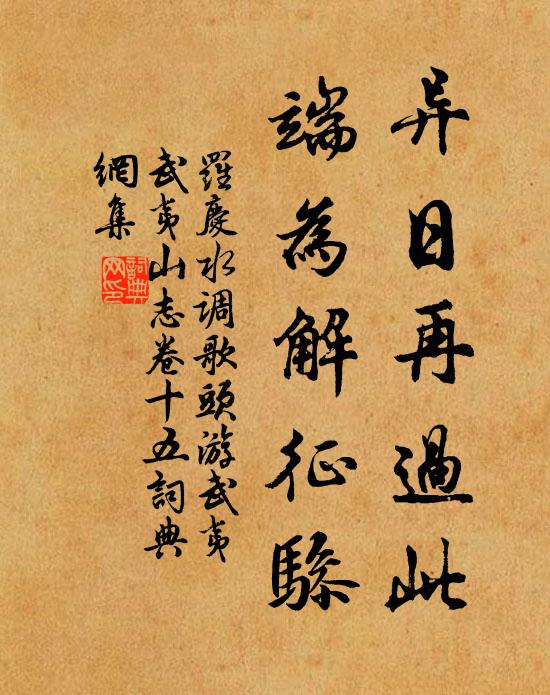 异日再過此
端為解征驂
羅慶水调歌頭游武夷
武夷山志卷十五詞典
網集
詞典網印